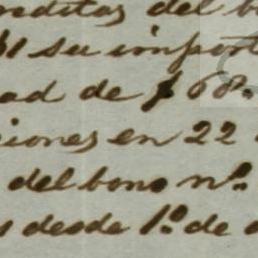 reditos del b
61 su import
ad de $ 68.
ciones en 22
del bono nº.
s desde 1.º de